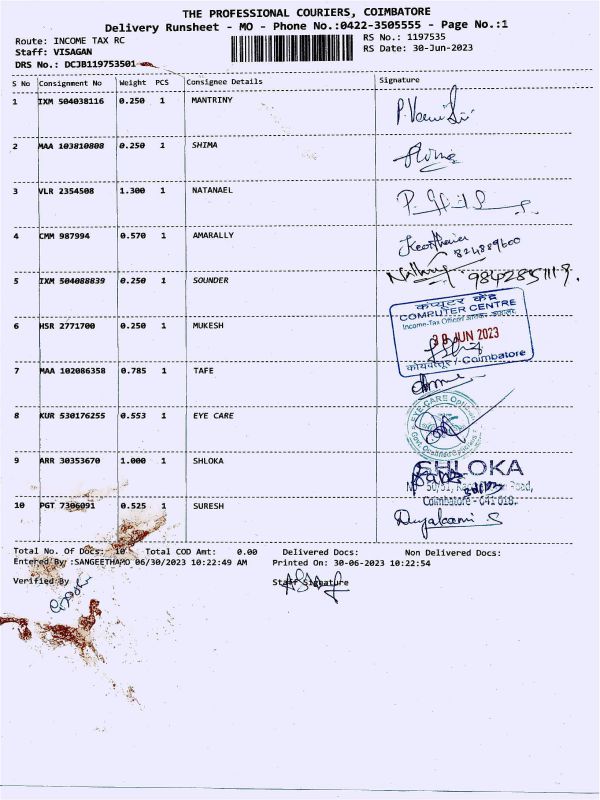 THE PROFESSIONAL COURIERS, COIMBATORE
Delivery Runsheet - MO - Phone No.:0422-3505555 - Page No.:1
Route: INCOME TAX RC
RS No.: 1197535
Staff: VISAGAN
RS Date: 30-Jun-2023
DRS No.: DCJB119753501
S No Consignment No Weight PCS Consignee Details Signature
1 IXM 504038116 0.250 1 MANTRINY
2 MAA 103810808 0.250 1 SHIMA
3 VLR 2354508 1.300 1 NATANAEL
4 CMM 987994 0.570 1 AMARALLY
824889600
5 IXM 504088839 0.250 1 SOUNDER
9842851119.
कंप्यूटर केंद्र
COMPUTER CENTRE
Income-Tax Office
6 HSR 2771700 0.250 1 MUKESH
JUN 2023
/ Coimbatore
7 MAA 102086358 0.785 1 TAFE
8 KUR 530176255 0.553 1 EYE CARE
EYE CARE
9 ARR 30353670 1.000 1 SHLOKA
SHLOKA
Road,
Coimbatore - 641 018.
10 PGT 7306091 0.525 1 SURESH
Total No. Of Docs: 10 Total COD Amt: 0.00 Delivered Docs: Non Delivered Docs:
Entered By :SANGEETHAMO 06/30/2023 10:22:49 AM Printed On: 30-06-2023 10:22:54
Verified By Staff Signature